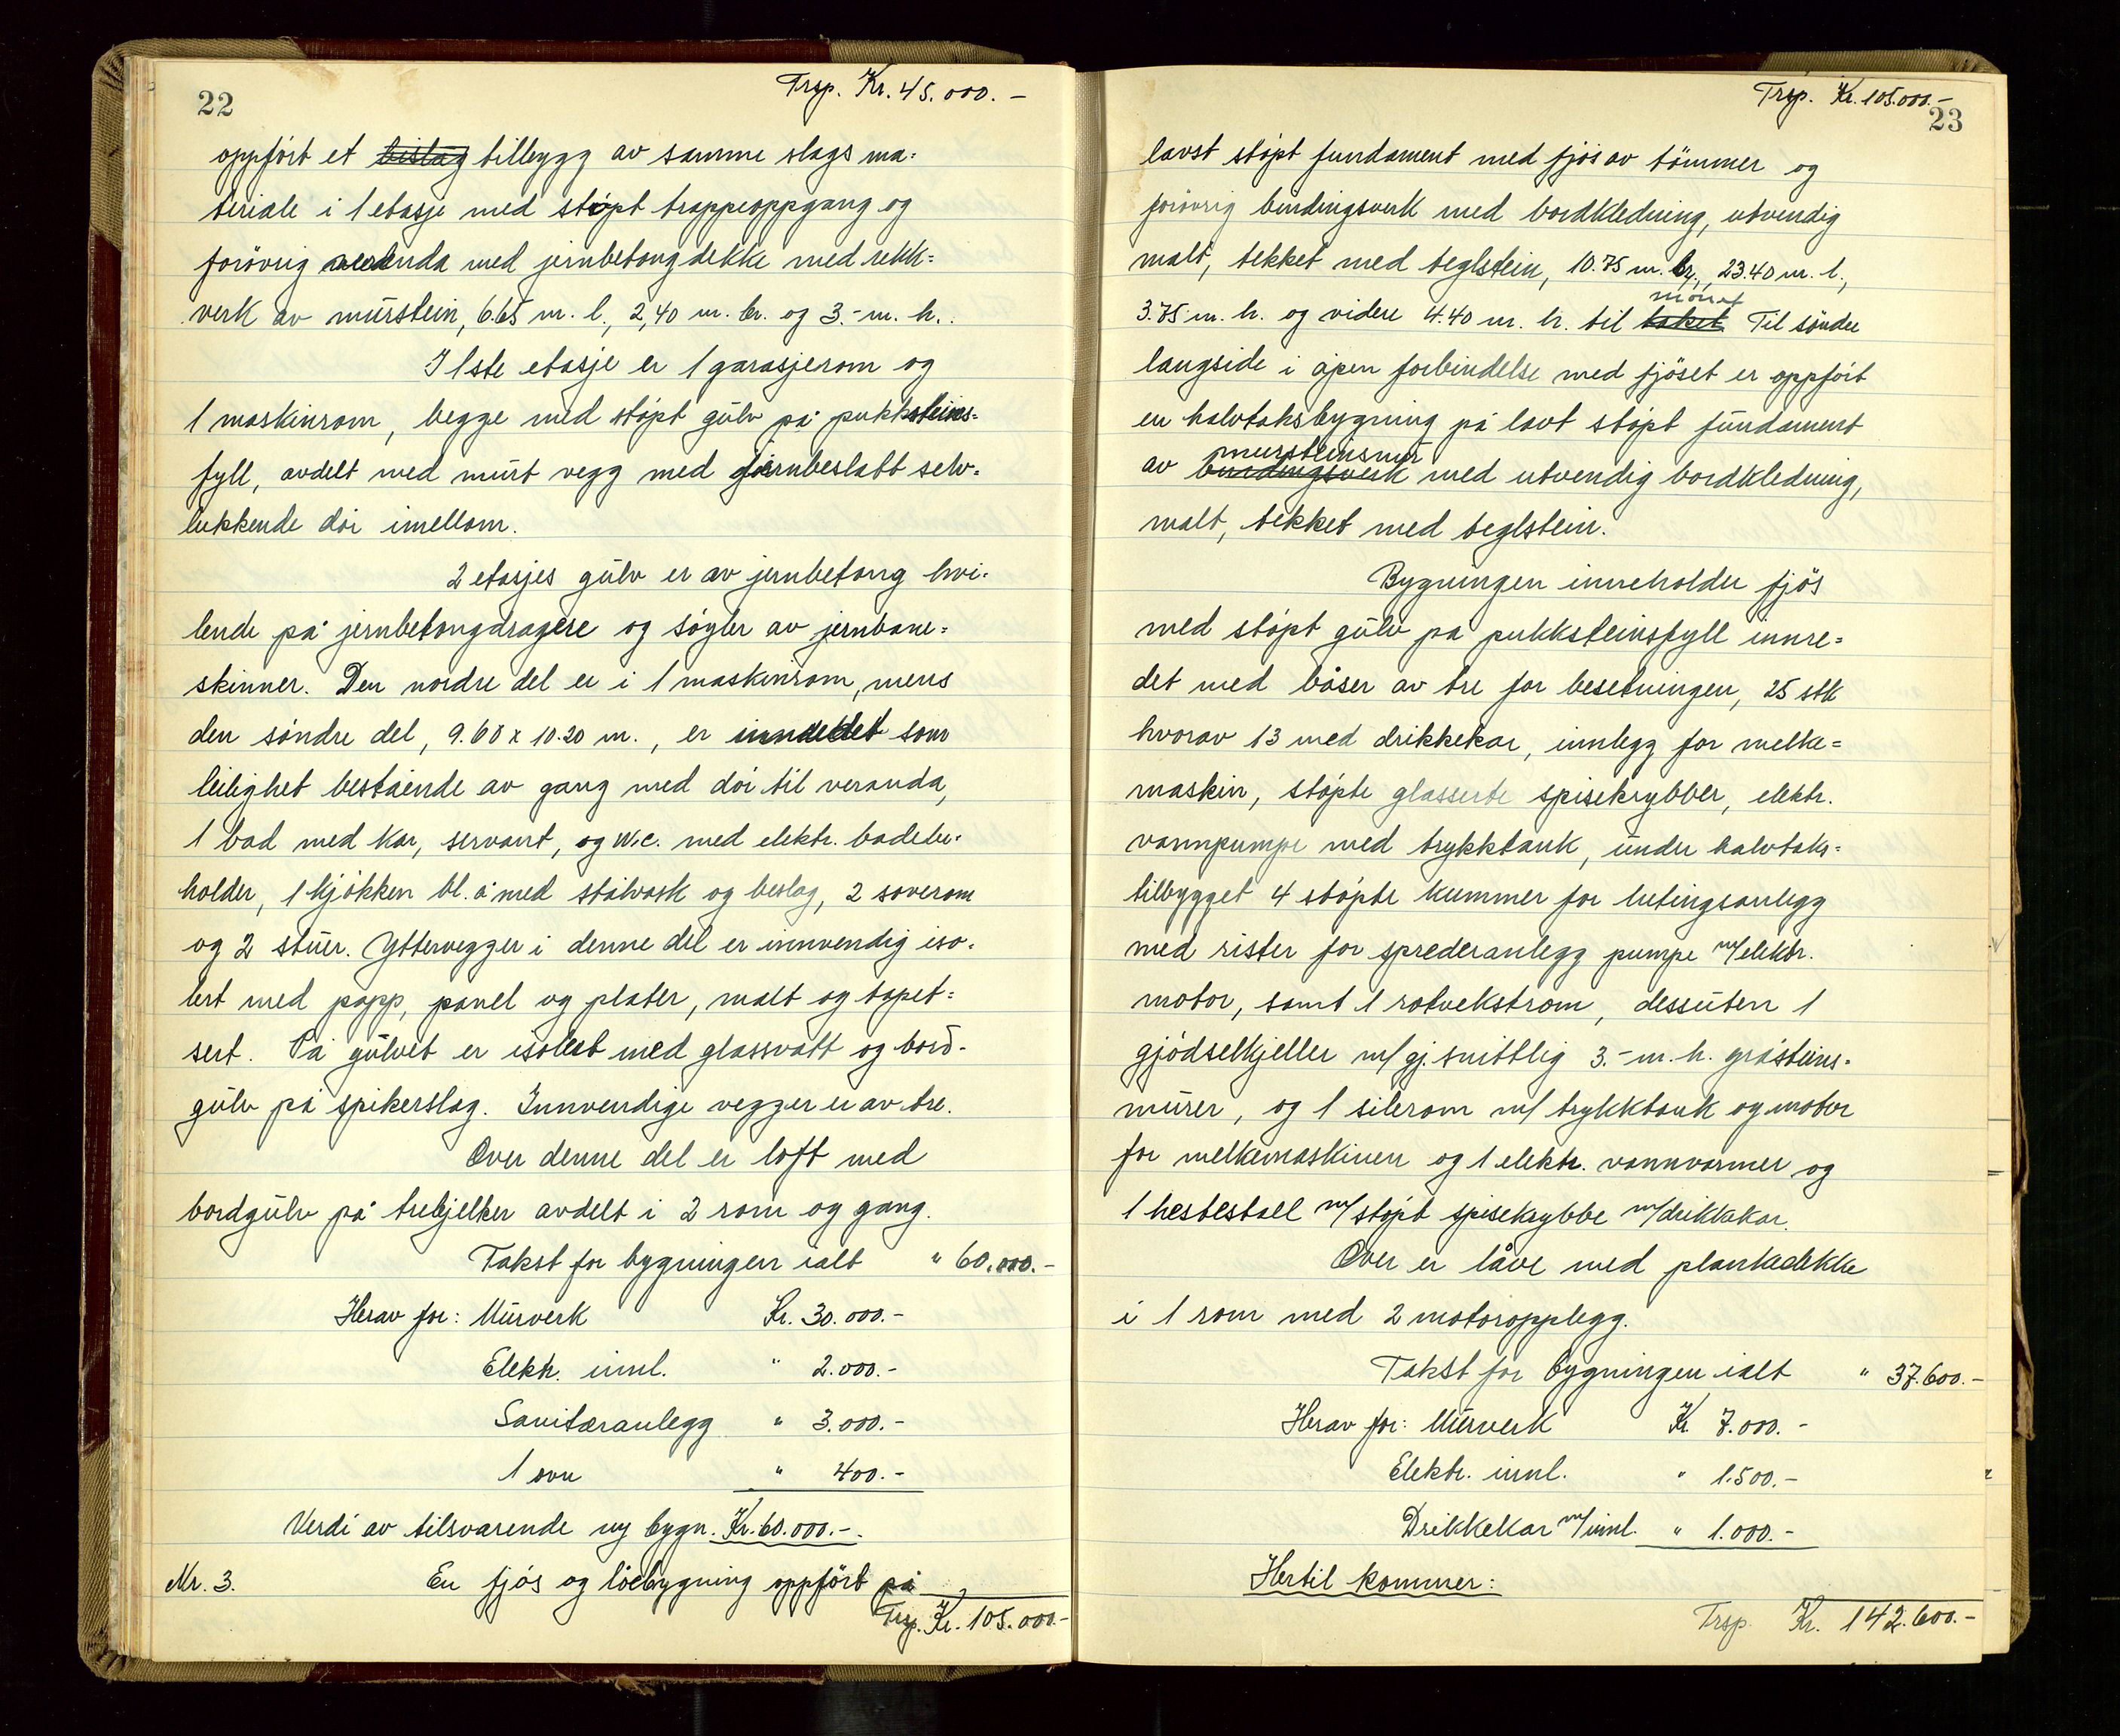 22
Trsp. Kr. 45.000.-
oppført et bislag tilbygg av samme slags ma=
teriale i 1 etasje med støpt trappeoppgang og
forøvrig veranda med jernbetongdekke med rekk=
verk av murstein, 6.65 m. l., 2,40 m. br. og 3.- m. h..
I 1ste etasje er 1 garasjerom og
1 maskinrom, begge med støpt gulv på pukksteins=
fyll, avdelt med murt vegg med jernbeslått selv=
lukkende dør imellom.
2 etasjes gulv er av jernbetong hvi=
lende på jernbetongdragere og søyler av jernbane=
skinner. Den nordre del er i 1 maskinrom, mens
den søndre del, 9.60 x 10.20 m., er inndelet som
leilighet bestående av gang med dør til veranda,
1 bad med kar, servant, og w.c. med elektr. badebe=
holder, 1 kjøkken bl. a. med stålvask og beslag, 2 soverom
og 2 stuer. Yttervegger i denne del er innvendig iso=
lert med papp, panel og plater, malt og tapet=
sert. På gulvet er isolert med glassvatt og bord=
gulv på spikerslag. Innvendige vegger er av tre.
Over denne del er loft med
bordgulv på trebjelker avdelt i 2 rom og gang.
Takst for bygningen ialt " 60.000.-
Herav for: Murverk Kr. 30.000.-
Elektr. innl. " 2.000.-
Sanitæranlegg " 3.000.-
1 ovn " 400.-
Verdi av tilsvarende ny bygn. Kr. 60.000.-.
Nr. 3. En fjøs og løebygning oppført på
Trsp. Kr. 105.000.-
Trsp. Kr. 105.000.-
23
lavst støpt fundament med fjøs av tömmer og
forøvrig bindingsverk med bordkledning, utvendig
malt, tekket med teglstein, 10.75 m. br., 23.40 m. l.,
mønet
3.75 m. h. og videre 4.40 m. h. til taket Til søndre
langside i åpen forbindelse med fjøset er oppført
en halvtaksbygning på lavt støpt fundament
mursteinsmur
av bindingsverk med utvendig bordkledning,
malt, tekket med teglstein.
Bygningen inneholder fjös
med støpt gulv på pukksteinsfyll innre=
det med båser av tre for besetningen, 25 stk
hvorav 13 med drikkekar, innlegg for melke=
maskin, støpte glasserte spisekrybber, elektr.
vannpumpe med trykktank, under halvtaks=
tilbygget 4 støpte kummer for lutingsanlegg
med rister for sprederanlegg pumpe m/elektr.
motor, samt 1 rotvekstrom, dessuten 1
gjødselkjeller m/ gj.snittlig 3.- m. h. gråsteins=
murer, og 1 silerom m/ trykktank og motor
for melkemaskinen og 1 elektr. vannvarmer og
1 hestestall m/støpt spisekrybbe m/drikkekar.
Over er låve med plankedekke
i 1 rom med 2 motoropplegg.
Takst for bygningen ialt " 37.600.-
Herav for: Murverk Kr. 7.000.-
Elektr. innl. " 1.500.-
Drikkekar m/innl. " 1.000.-
Hertil kommer:
Trsp. Kr. 142.600.-